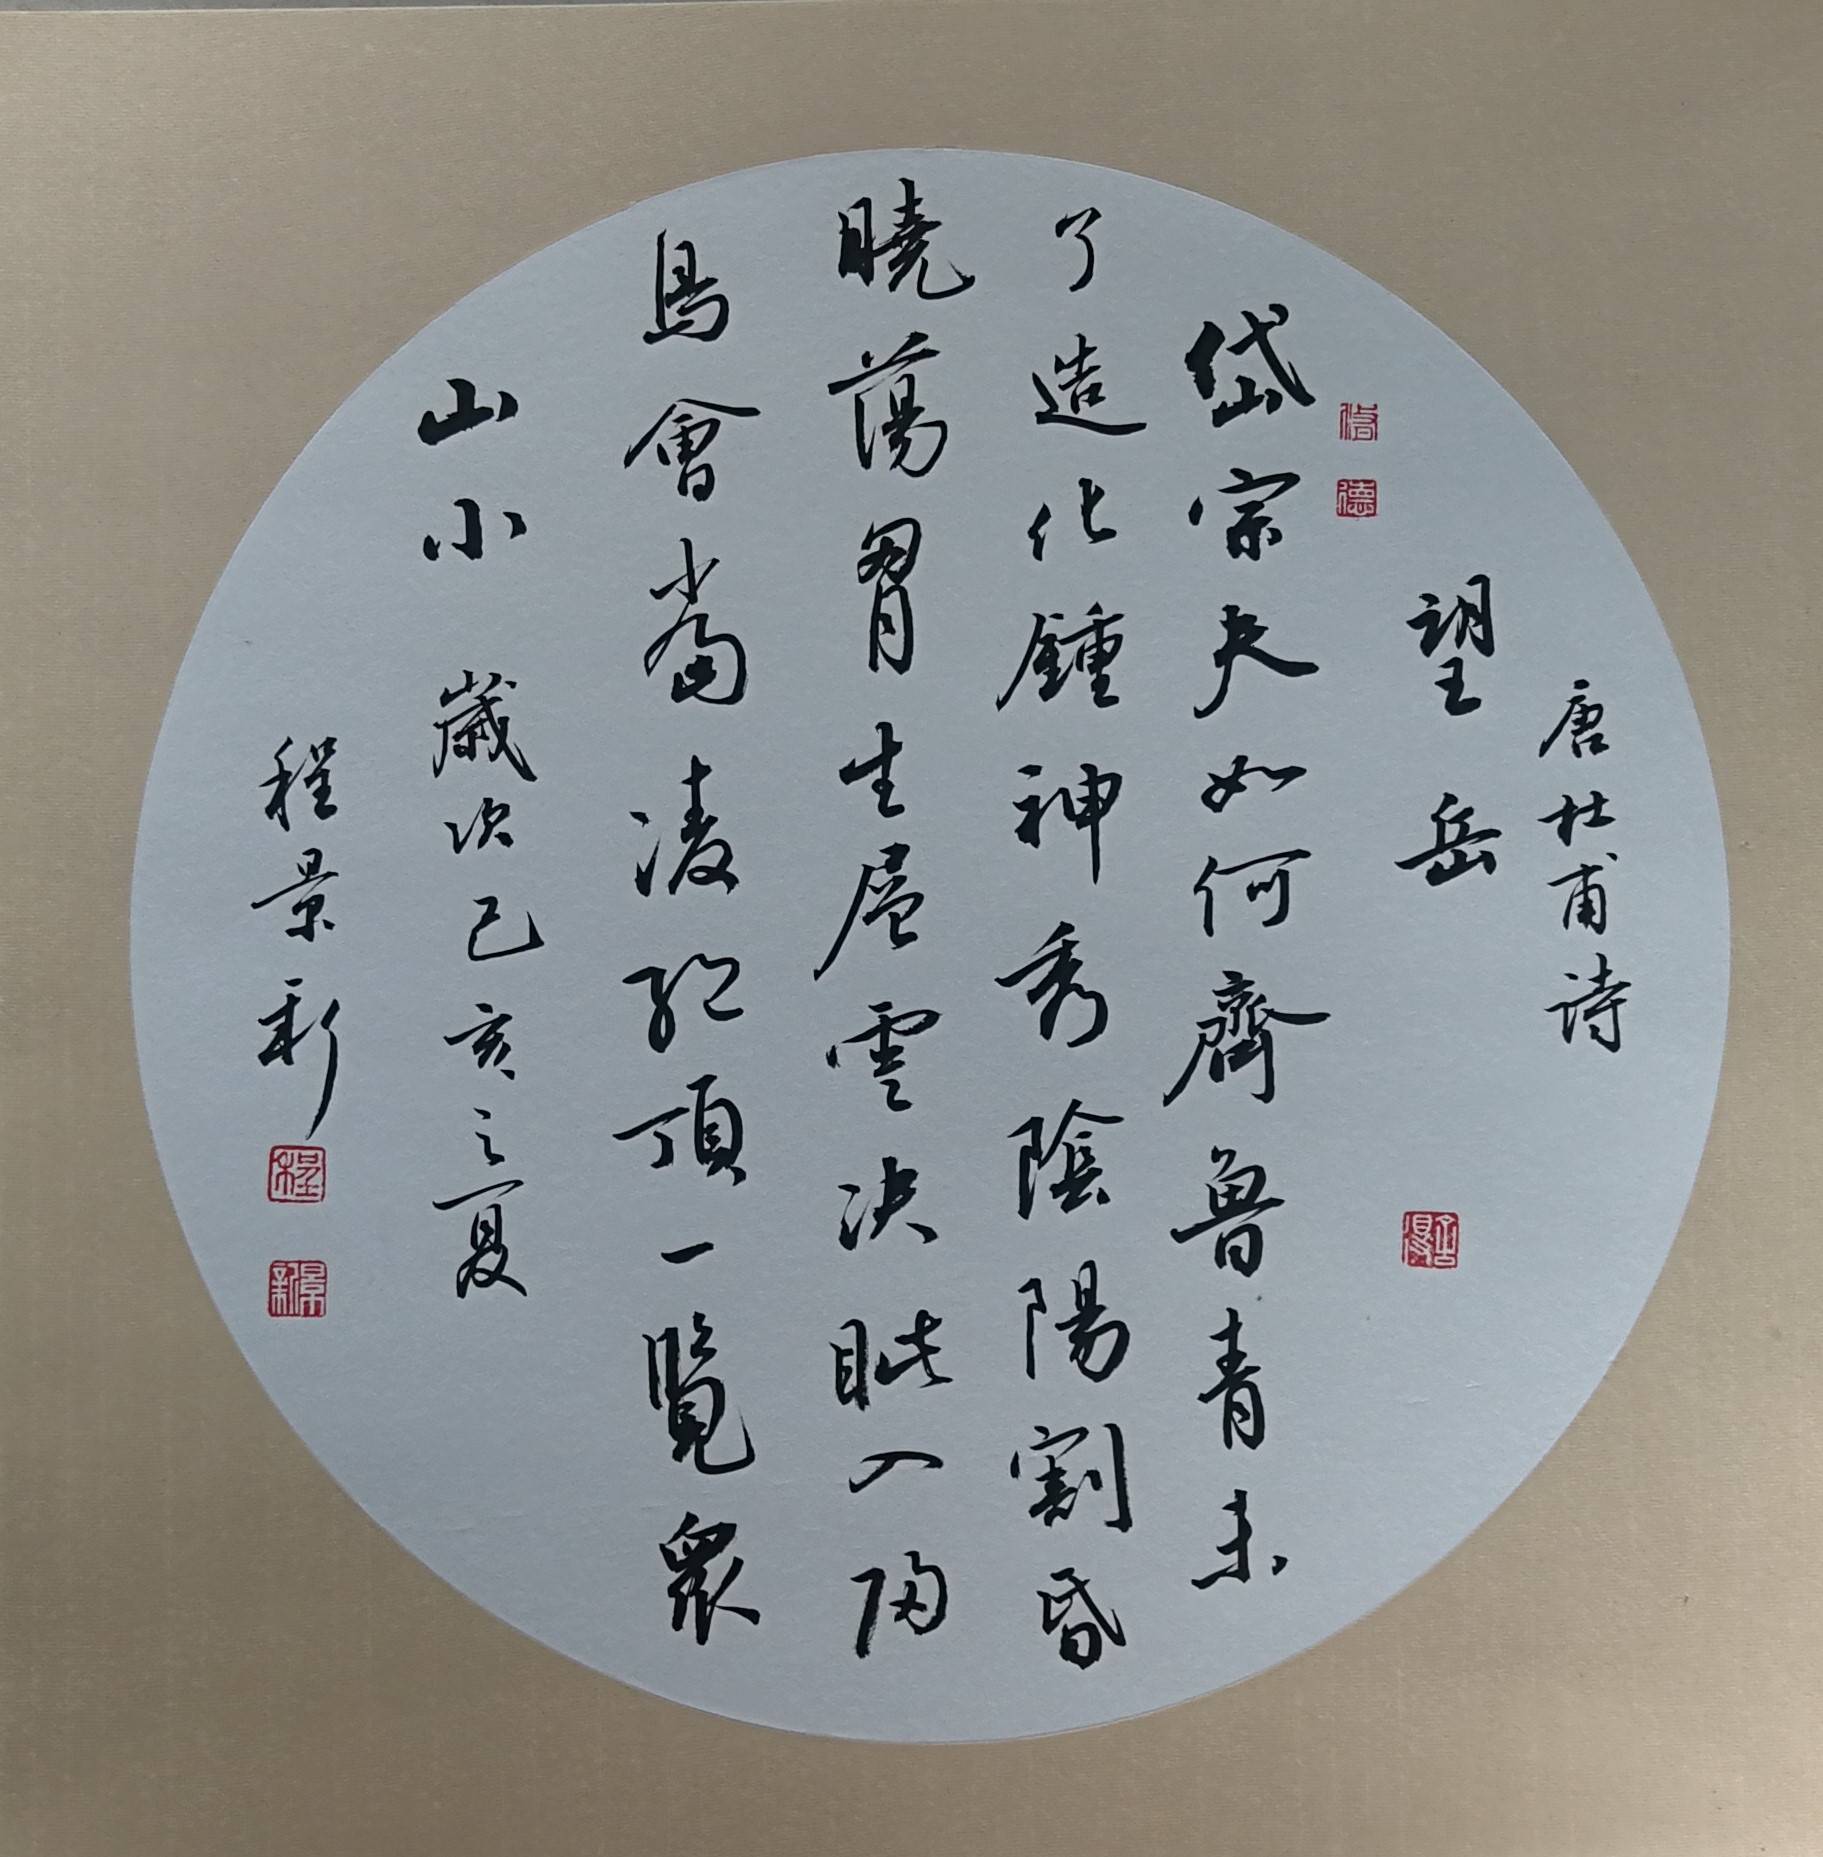 唐杜甫詩
望岳
岱宗夫如何齊魯青未
了造化鍾神秀陰陽割昏
曉蕩胷生層雲決眦入歸
鳥會當凌絕頂一覽衆
山小 歲次己亥之夏
程景新
德
舍得
程
景新